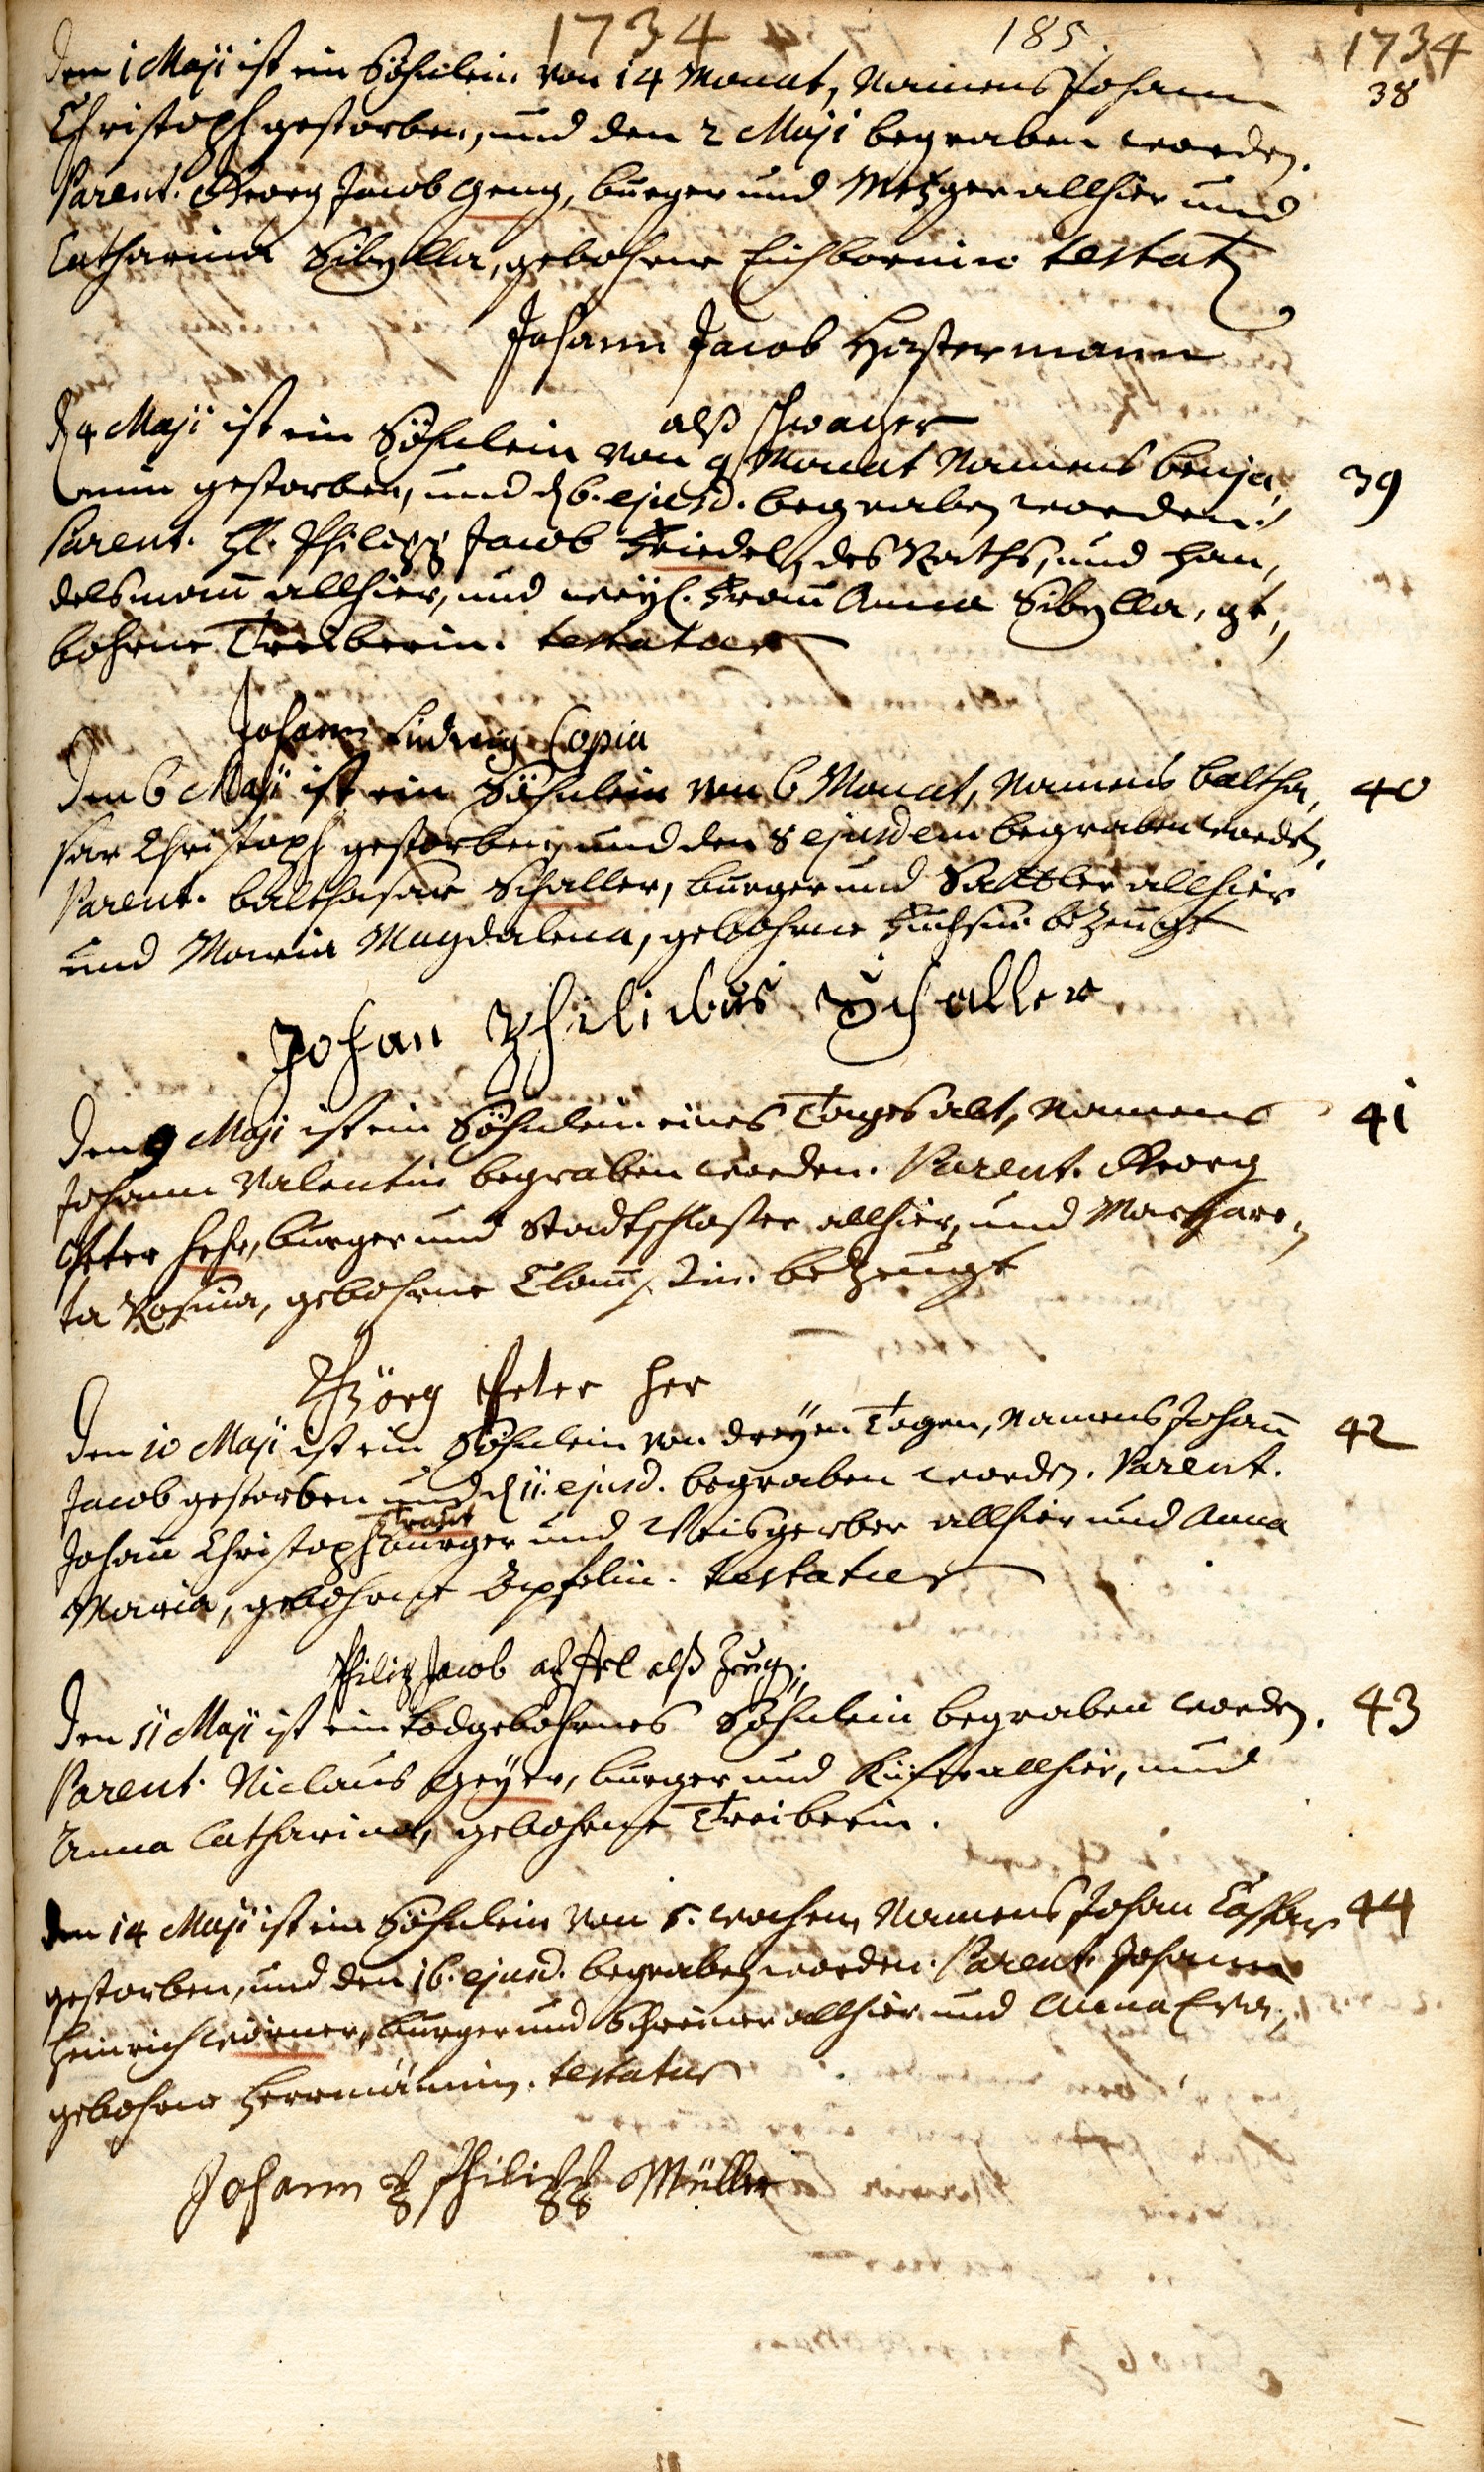 1734 185. 1734
Den 1 Maji ist ein Söhnlein von 14 Monat, Namens Johann 38
Christoph gestorben, und den 2 Maji begraben worden.
Parent. Georg Jacob Geng, burger und Metzger allhier und
Catharina Sibylla, gebohrne Eichbornin testat
Johann Jacob Hastermann
alß schwager
d 4 Maji ist ein Söhnlein von 9 Monat Namens Benja, 39
min gestorben, und d 6. ejusd. begraben worden.
Parent. H. Philipp Jacob Friedel, des Raths, und Han,
delsmañ allhier, und weyl. Frau Anna Sibylla, ge,
bohrne Treiberin. testatur
Johann Ludwig Copia
Den 6 Maji ist ein Söhnlein von 6 Monat, Namens Baltha, 40
sar Christoph gestorben, und den 8 ejusdem begraben worden.
Parent. Balthasar Schaller, burger und Sattler allhier
und Maria Magdalena, gebohrne Fuchsin bezeugt
Johan Philibus Schaller
Den 9 Maji ist ein Söhnlein eines Tages alt, Namens 41
Johann Valentin begraben worden. Parent. Georg
Peter Hehr, burger und Stadtschlosser allhier, und Margare,
ta Rosina, gebohrne bezeugt
Görg Peter Her
Den 10 Maji ist ein Söhnlein von dreyen Tagen, Namens Johañ 42
Jacob gestorben und d 11. ejusd. begraben worden. Parent.
Johañ Christoph burger und Weisgerber allhier und Anna
Maria, gebohrne Öpfelin. testatur
Philip Jacob apffel alß Zeug,
Den 11 Maji ist ein todgebohrnes Söhnlein begraben worden. 43
Parent. Niclaus Geyer, burger und Küfer allhier, und
Anna Catharina, gebohrne Treiberin.
Den 14 Maji ist ein Söhnlein von 5. wochen, Namens Johan Caspar 44
gestorben, und den 16. ejusd. begraben worden. Parent. Johann
Heinrich Wörner, burger und Schreiner allhier und Anna Eva,
gebohrne Herrmännin. testatur
Johann Philipp Müller